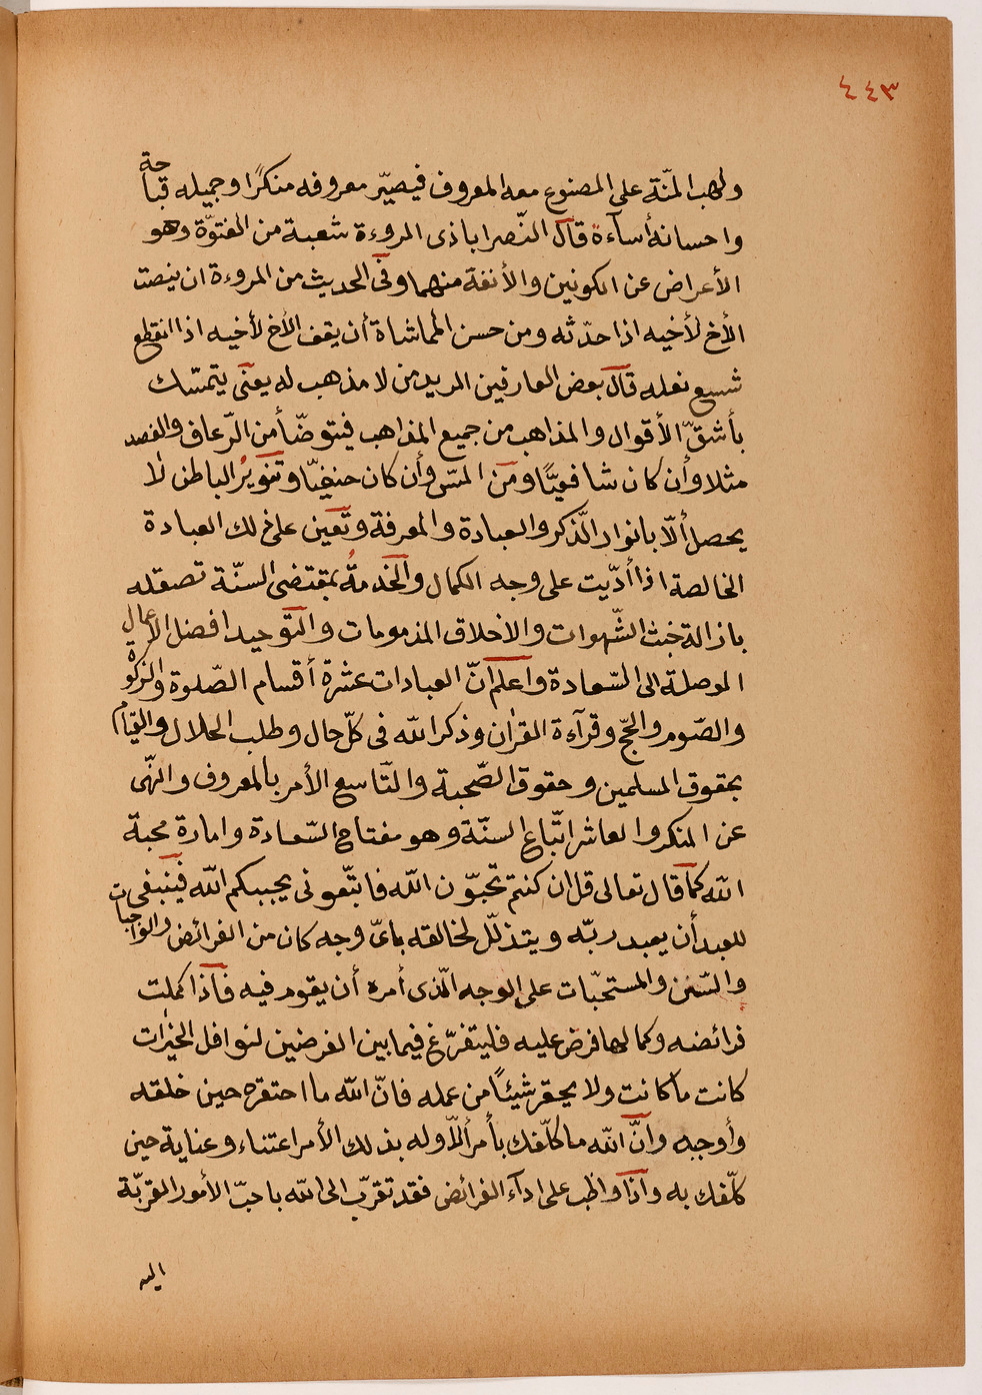 ٤٤٣
ولهب المنّة على المصنوع معه المعروف فيصيّر معروفه منكرًا وجميله قباحة
واحسانه أسآءة قال النّصراباذى المروءة شعبة من الفتوّة وهو
الأعراض عن الكونين والأنفة منهما وفى الحديث من المروءة ان ينصت
الأخ لأخيه اذا حدّثه ومن حسن المماشاة أن يقف الأخ لأخيه اذا انقطع
شسع نعله قال بعض العارفين المريد من لا مذهب له يعنى يتمسّك
بأشقّ الأقوال والمذاهب من جميع المذاهب فيتوضّأ من الرّعاف والفصد
مثلا وأن كان شافعيًّا ومن المسّ وأن كان حنفيّا وتنوير الباطن لا
يحصل ألّا بانوار الذّكر والعبادة والمعرفة وتعين على ذلك العبادة
الخالصة اذا أدّيت على وجه الكمال والخدمةُ بمقتضى السنّة تصقله
بازالة خبث الشّهوات والاخلاق المذمومات والتوحيد افضل الاعمال
الموصلة الى السّعادة واعلم انّ العبادات عشرة أقسام الصّلوة والزكوة
والصّوم والحجّ وقرآءة القرٰان وذكر الله فى كلّ حال وطلب الحلال والقيام
بحقوق المسلمين وحقوق الصّحبة والتّاسع الأمر بالمعروف والنّهى
عن المنكر والعاشر اتّباع السنّة وهو مفتاح السّعادة وامارة محبة
الله كما قال تعالى قل ان كنتم تحبّون الله فاتّبعونى يحببكم الله فينبغى
للعبد أن يعبد ربّه ويتذلّل لخالقه باىّ وجه كان من الفرائض والواجبات
والسّنن والمستحبّات على الوجه الّذى أمره أن يقوم فيه فاذا كملت
فرائضه وكمالها فرض عليه فليتفرّغ فيما بين الفرضين لنوافل الخيرات
كانت ما كانت ولا يحقر شيئًا من عمله فانّ الله ما احتقره حين خلقه
وأوجبه وانّ الله ما كلّفك بأمر ألّا وله بذلك الأمر اعتناء وعناية حين
كلّفك به واذا واظب على ادآء الفرائض فقد تقرّب الى الله باحبّ الأمور المقرّبة
اليه